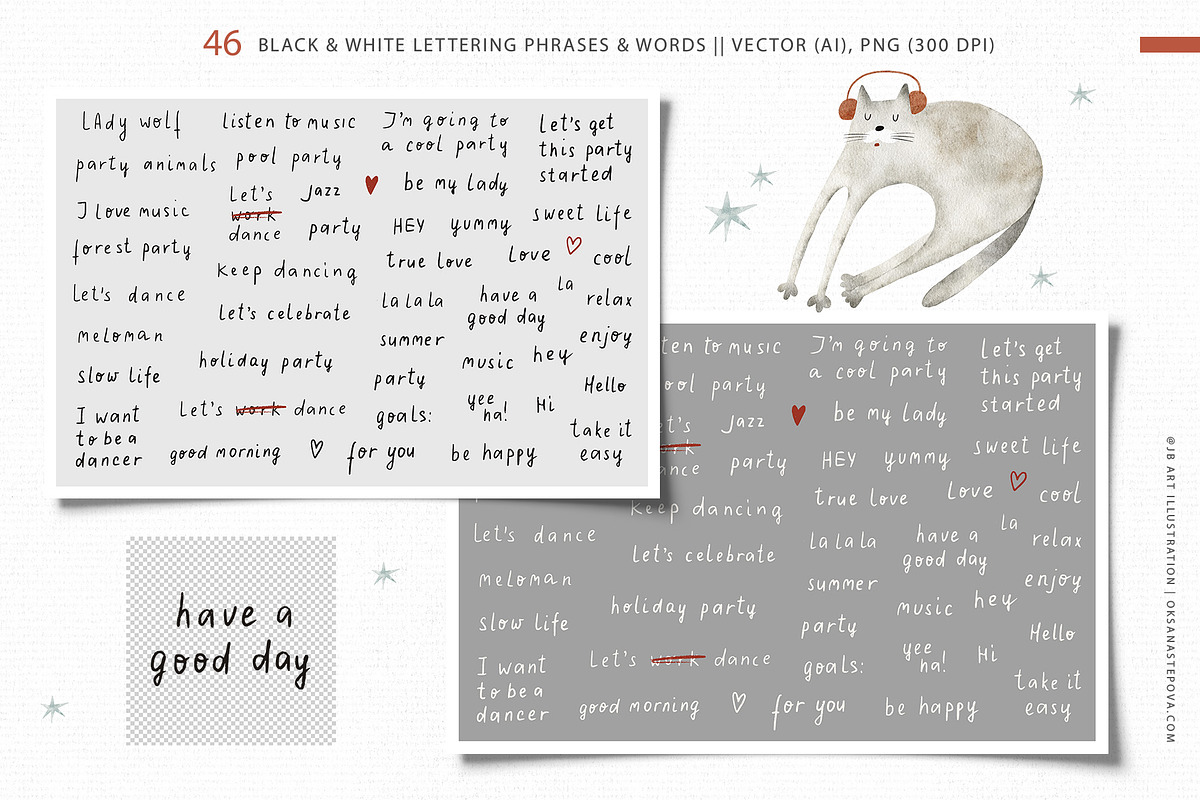 46 BLACK & WHITE LETTERING PHRASES & WORDS || VECTOR (AI), PNG (300 DPI)
LAdy wolf
party animals
I love music
forest party
Let's dance
meloman
slow life
I want
to be a
dancer
listen to music
pool party
Let's
work
dance
Jazz
party
keep dancing
Let's celebrate
holiday party
Let's work dance
good morning
I'm going to
a cool party
be my lady
HEY
yummy
true love
la la la
summer
party
goals:
for you
Let's get
this party
started
sweet life
Love
cool
la
have a
good day
relax
enjoy
music
hey
Hello
yee
ha!
Hi
take it
easy
be happy
ten to music
ool party
et's
work
ance
Jazz
party
keep dancing
Let's dance
Let's celebrate
meloman
holiday party
slow life
Let's work dance
I want
to be a
dancer
good morning
I'm going to
a cool party
be my lady
HEY
yummy
true love
la la la
summer
party
goals:
for you
Let's get
this party
started
sweet life
Love
cool
la
have a
good day
relax
enjoy
music
hey
Hello
yee
ha!
Hi
take it
easy
be happy
have a
good day
@JB ART ILLUSTRATION | OKSANASTEPOVA.COM